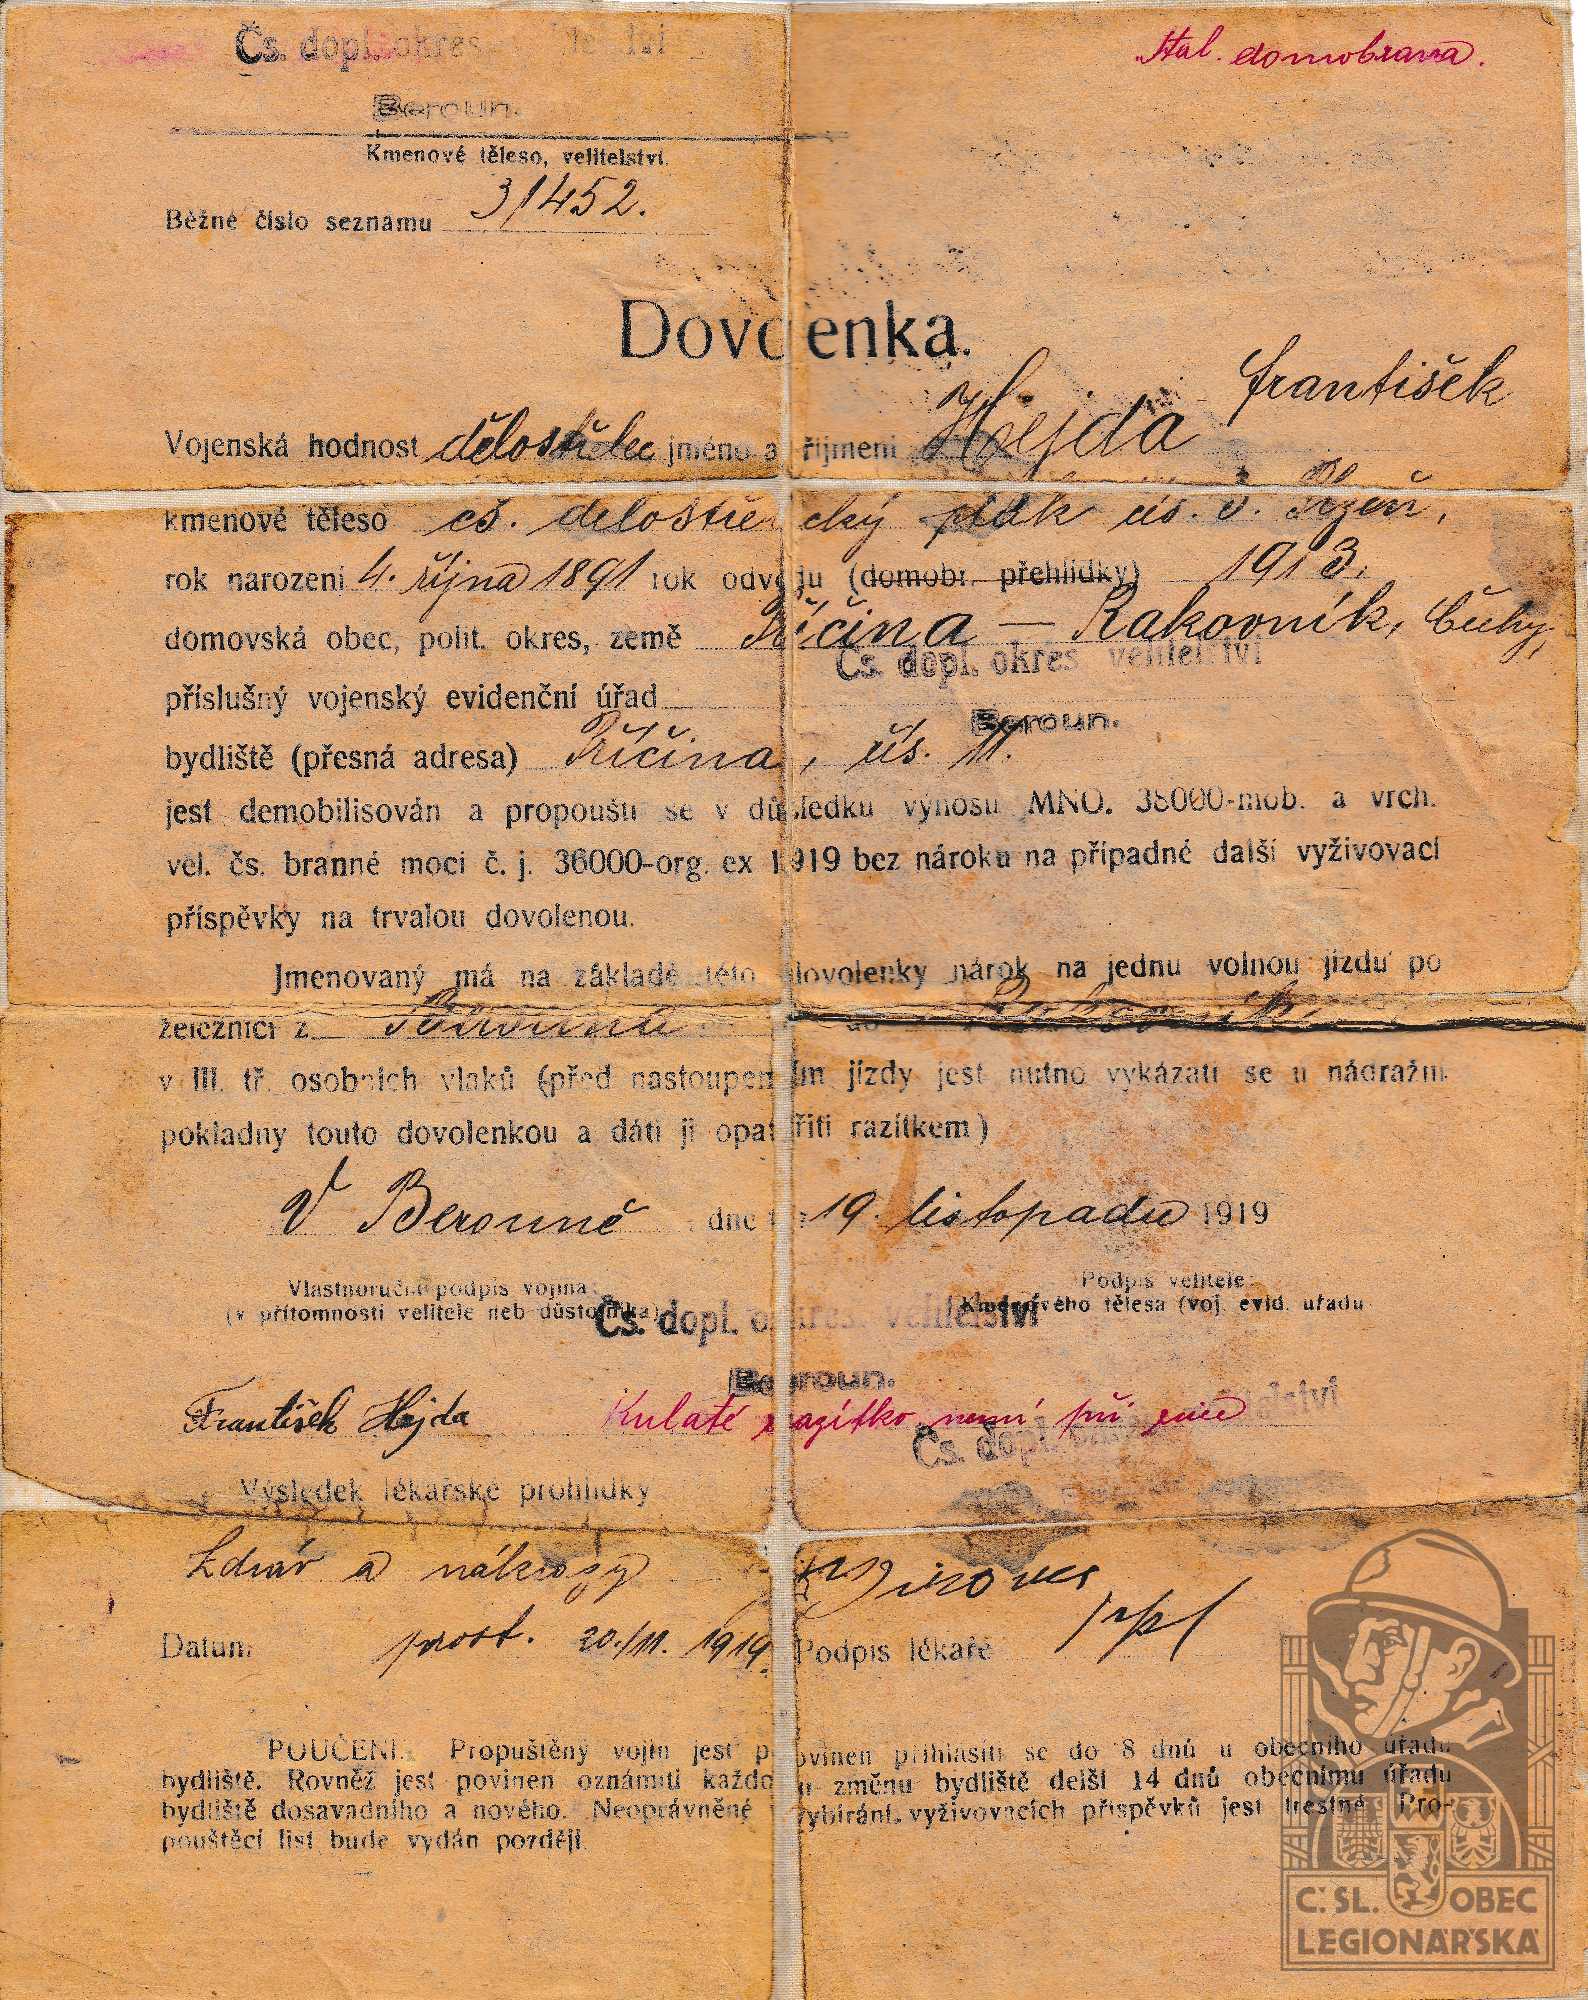 Čs. dopl. okres
Ital. domobrana.
Beroun.
Kmenové těleso, velitelství.
Běžné číslo seznamu 31452.
Dovolenka.
Vojenská hodnost dělostřelec jméno a příjmení Hejda František
kmenové těleso čs. delostřelecký pluk čís. 5. Plzeň,
rok narození 4. října 1891 rok odvodu (domobr. přehlídky) 1913.
domovská obec, polit. okres, země Příčina — Rakovník, Čechy,
Čs. dopl. okres. velitelství
příslušný vojenský evidenční úřad
Beroun.
bydliště (přesná adresa) Příčina, čís. 11.
jest demobilisován a propouští se v důsledku výnosu MNO. 38000-mob. a vrch.
vel. čs. branné moci č. j. 36000-org. ex 1919 bez nároku na případné další vyživovací
příspěvky na trvalou dovolenou.
Jmenovaný má na základě této dovolenky nárok na jednu volnou jízdu po
železnici z Berouna do Rakovník.
v III. tř. osobních vlaků (před nastoupením jízdy jest nutno vykázati se u nádražní
pokladny touto dovolenkou a dáti ji opatřiti razítkem)
V Berouně dne 19. listopadu 1919
Vlastnoruční podpis vojína
(v přítomnosti velitele neb důstojníka)
Podpis velitele
Kmenového tělesa (voj. evid. úřadu
Čs. dopl. okres. velitelství
Beroun.
František Hejda
Kulaté razítko není při ruce
Čs. dopl. velitelství
Výsledek lékařské prohlídky
Zdráv a nákazy
prost. 20./11. 1919.
Datum
Podpis lékaře
POUČENÍ. Propuštěný vojín jest povinen přihlásiti se do 8 dnů u obecního úřadu
bydliště. Rovněž jest povinen oznámiti každou změnu bydliště delší 14 dnů obecnímu úřadu
bydliště dosavadního a nového. Neoprávněné vybírání vyživovacích příspěvků jest trestné. Pro-
pouštěcí list bude vydán později.
Č. SL. OBEC
LEGIONÁŘSKÁ